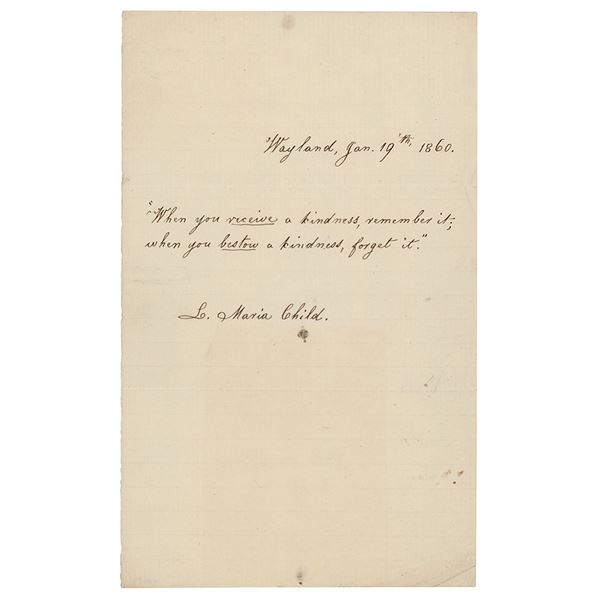 Wayland, Jan. 19th, 1860.
"When you receive a kindness, remember it;
when you bestow a kindness, forget it."
L. Maria Child.